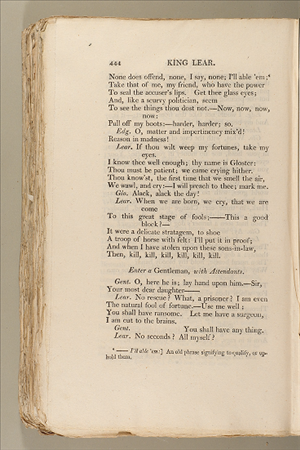 444 KING LEAR.
None does offend, none, I say, none; I'll able 'em:*
Take that of me, my friend, who have the power
To seal the accuser's lips. Get thee glass eyes;
And, like a scurvy politician, seem
To see the things thou dost not.—Now, now, now,
now:
Pull off my boots:—harder, harder; so.
Edg. O, matter and impertinency mix'd!
Reason in madness!
Lear. If thou wilt weep my fortunes, take my
eyes.
I know thee well enough; thy name is Gloster:
Thou must be patient; we came crying hither.
Thou know'st, the first time that we smell the air,
We wawl, and cry:—I will preach to thee; mark me.
Glo. Alack, alack the day!
Lear. When we are born, we cry, that we are
come
To this great stage of fools;——This a good
block?—
It were a delicate stratagem, to shoe
A troop of horse with felt: I'll put it in proof;
And when I have stolen upon these sons-in-law,
Then, kill, kill, kill, kill, kill, kill.
Enter a Gentleman, with Attendants.
Gent. O, here he is; lay hand upon him.—Sir,
Your most dear daughter——
Lear. No rescue? What, a prisoner? I am even
The natural fool of fortune.—Use me well;
You shall have ransome. Let me have a surgeon,
I am cut to the brains.
Gent. You shall have any thing.
Lear. No seconds? All myself?
* —— I'll able 'em:] An old phrase signifying to qualify, or up-
hold them.